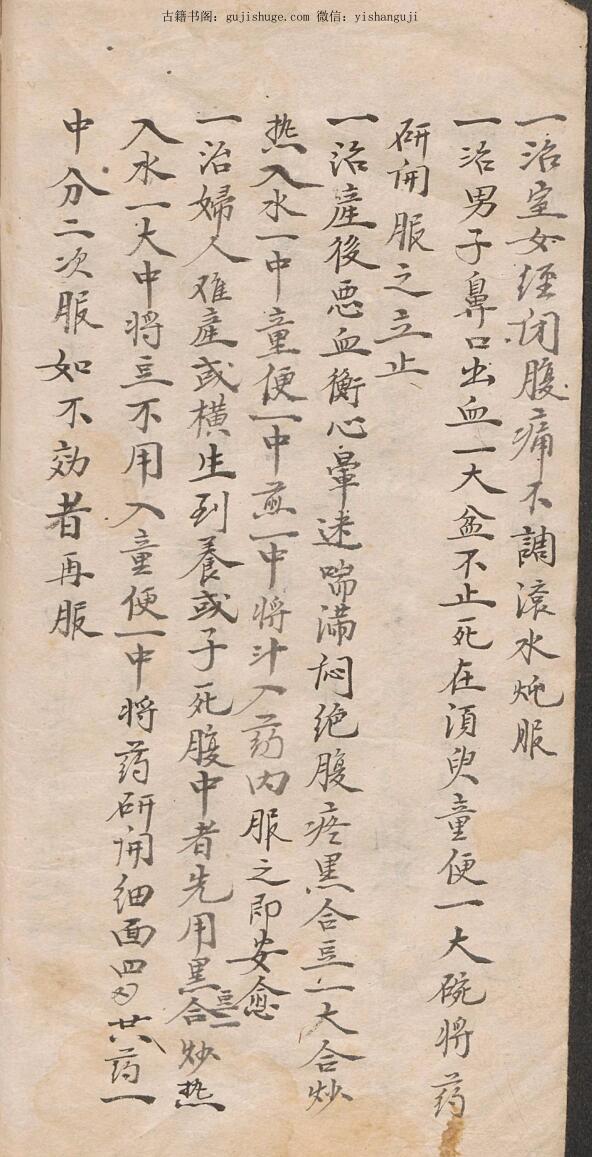 古籍书阁：gujishuge.com 微信：yishanguji
一治室女经闭腹痛不調滚水炖服
一治男子鼻口出血一大盆不止死在須臾童便一大碗将药
研開服之立止
一治產後恶血衝心暈迷喘满闷绝腹疼黑合豆一大合炒
热入水一中童便一中煎一中将汁入药内服之即安愈
一治婦人难產或横生到養或子死腹中者先用黑合豆一炒热
入水一大中将豆不用入童便一中将药研開细面四 廿八药一
中分二次服如不効者再服